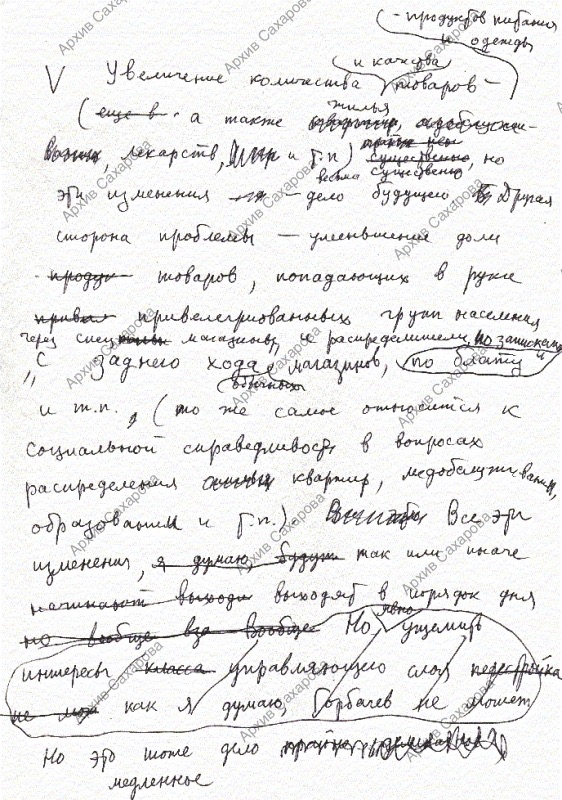 (- продуктов питания
и одежды
и качества
V Увеличение количества товаров —
жилья
(еще в . а также квартир, медобслужи-
вания, лекарств, и т.п.) существенно, но
весьма существенно,
эти изменения — дело будущего. Другая
сторона проблемы — уменьшение доли
продук товаров, попадающих в руки
привел привелегированных групп населения
через спец магазины, и распределители, по запискам,
"с заднего хода" магазинов, по блату"
обычных
и т.п., (то же самое относится к
социальной справедливость в вопросах
распределения квартир, медобслуживания,
образования и т.п.) Все эти
изменения, я думаю, будут так или иначе
начинают выходи выходят в порядок дня
явно
но вообще вза вообще Но, ущемить
интересы класса управляющего слоя перестройка
не мож как я думаю, Горбачев не может
Но это тоже дело
медленное
Архив Сахарова